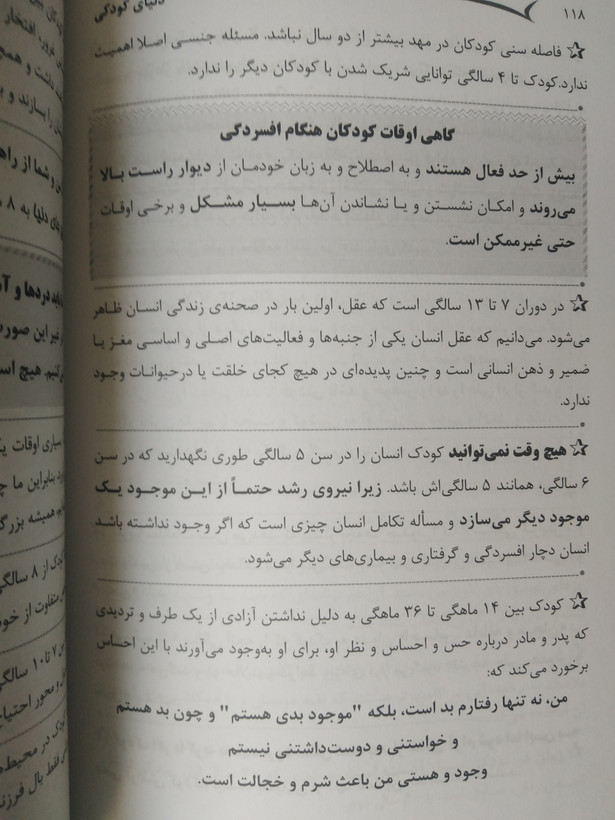 ۱۱۸
دنیای کودکی
☆ فاصله سنی کودکان در مهد بیشتر از دو سال نباشد. مسئله جنسی اصلا اهمیت
ندارد.کودک تا ۴ سالگی توانایی شریک شدن با کودکان دیگر را ندارد.
گاهی اوقات کودکان هنگام افسردگی
بیش از حد فعال هستند و به اصطلاح و به زبان خودمان از دیوار راست بالا
می‌روند و امکان نشستن و یا نشاندن آن‌ها بسیار مشکل و برخی اوقات
حتی غیرممکن است.
☆ در دوران ۷ تا ۱۳ سالگی است که عقل، اولین بار در صحنه‌ی زندگی انسان ظاهر
می‌شود. می‌دانیم که عقل انسان یکی از جنبه‌ها و فعالیت‌های اصلی و اساسی مغز یا
ضمیر و ذهن انسانی است و چنین پدیده‌ای در هیچ کجای خلقت یا درحیوانات وجود
ندارد.
☆ هیچ وقت نمی‌توانید کودک انسان را در سن ۵ سالگی طوری نگهدارید که در سن
۶ سالگی، همانند ۵ سالگی‌اش باشد. زیرا نیروی رشد حتماً از این موجود یک
موجود دیگر می‌سازد و مسأله تکامل انسان چیزی است که اگر وجود نداشته باشد
انسان دچار افسردگی و گرفتاری و بیماری‌های دیگر می‌شود.
☆ کودک بین ۱۴ ماهگی تا ۳۶ ماهگی به دلیل نداشتن آزادی از یک طرف و تردیدی
که پدر و مادر درباره حس و احساس و نظر او، برای او به‌وجود می‌آورند با این احساس
برخورد می‌کند که:
من، نه تنها رفتارم بد است، بلکه "موجود بدی هستم" و چون بد هستم
و خواستنی و دوست‌داشتنی نیستم
وجود و هستی من باعث شرم و خجالت است.